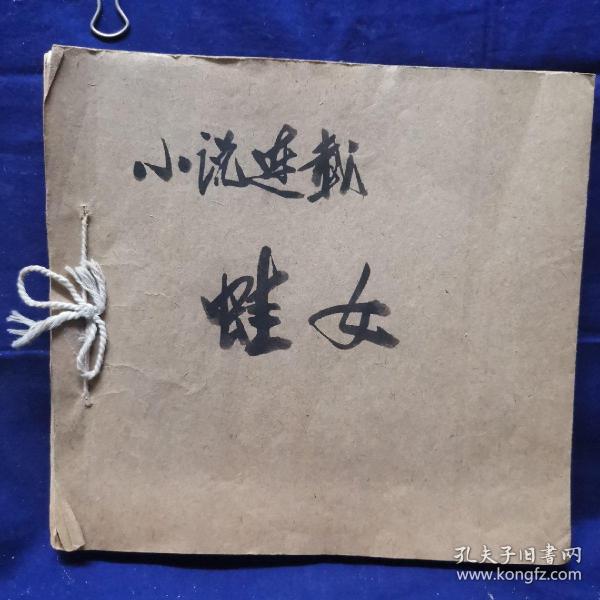 小说连载
蛙女
孔夫子旧書网
www.kongfz.com